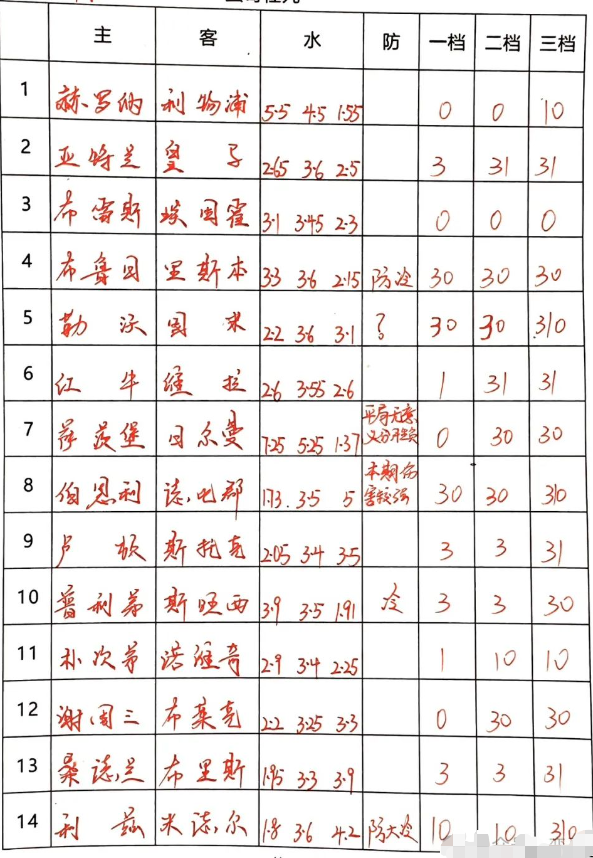 主 客 水 防 一档 二档 三档
1 赫罗纳 利物浦 5.5 4.5 1.55 0 0 10
2 亚特兰 皇子 2.65 3.6 2.5 3 31 31
3 布雷斯 埃因霍 3.1 3.45 2.3 0 0 0
4 布鲁日 里斯本 3.3 3.6 2.15 防冷 30 30 30
5 勒沃 国米 2.2 3.6 3.1 ? 30 30 310
6 红牛 维拉 2.6 3.55 2.6 1 31 31
7 萨茨堡 日尔曼 7.25 5.25 1.37 平局无意 0 30 30
义分胜负
8 伯恩利 诺屯郡 1.73 3.5 5 本期伤 30 30 310
害较强
9 卢顿 斯托克 2.05 3.4 3.5 3 3 31
10 普利茅 斯旺西 3.9 3.5 1.91 冷 3 3 30
11 朴次茅 诺维奇 2.9 3.4 2.25 1 10 10
12 谢周三 布莱克 2.2 3.25 3.3 0 30 30
13 桑诺兰 布里斯 1.95 3.3 3.9 3 3 31
14 利兹 米诺尔 1.8 3.6 4.2 防大冷 10 10 310